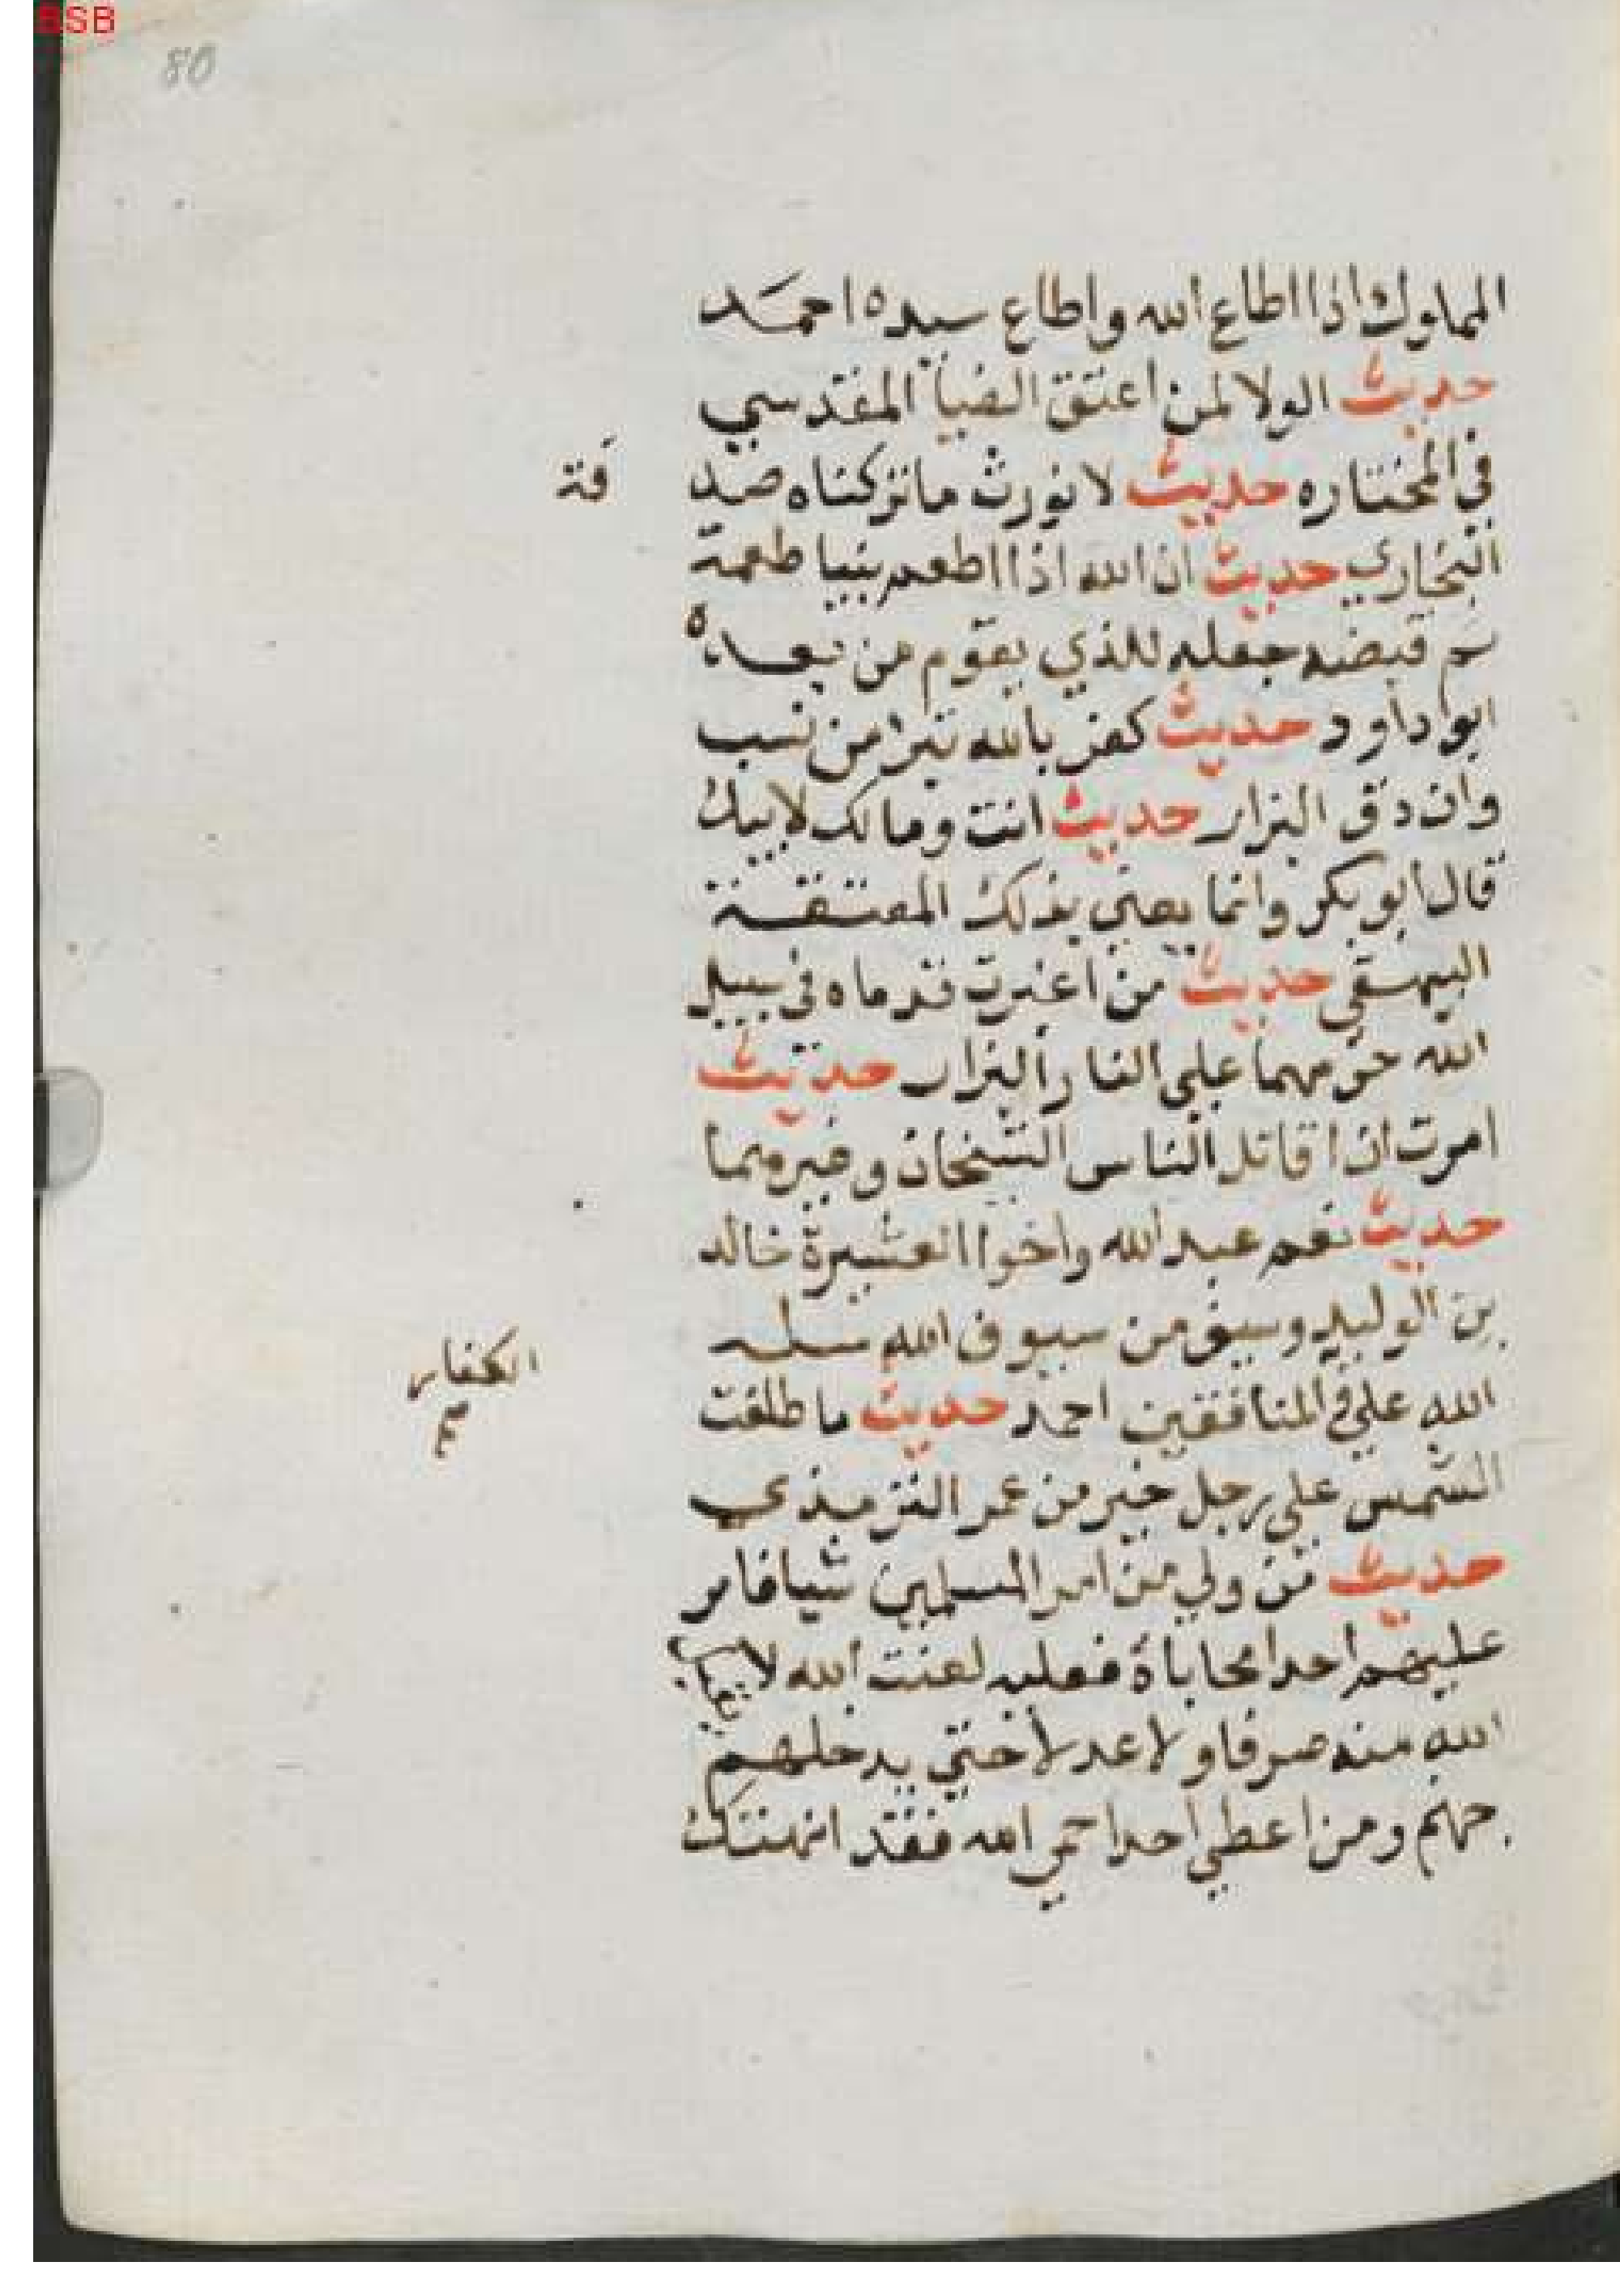 BSB
80
المملوك اذا اطاع الله واطاع سيده احمد
حديث الولا لمن اعتق الضيا المقدسي
في المختاره حديث لا نورث ما تركناه صد
قة
البخاري حديث ان الله اذا اطعم نبيا طعمة
ثم قبضه جعله للذي يقوم من بعده
ابوا داود حديث كفر بالله تبرا من نسب
وان دق البزار حديث انت ومالك لابيك
قال ابو بكر وانما يعني بذلك النفقة
البيهقي حديث من اغبرت قدماه في سبيل
الله حرمهما علي النار البزار حديث
امرت ان اقاتل الناس الشيخان وغيرهما
حديث نعم عبد الله واخوا العشيرة خالد
بن الوليد وسيف من سيوف الله سله
الكفار
الله علي المنافقين احمد حديث ما طلعت
الشمس علي رجل خير من عمر الترميذي
حديث من ولي من امر المسلمين شيا فامر
عليهم احدا محاباة فعليه لعنت الله لا يقبل
الله منه صرفا ولا عدلا حتي يدخلهم
جهنم ومن اعطي احدا حمي الله فقد انتهك